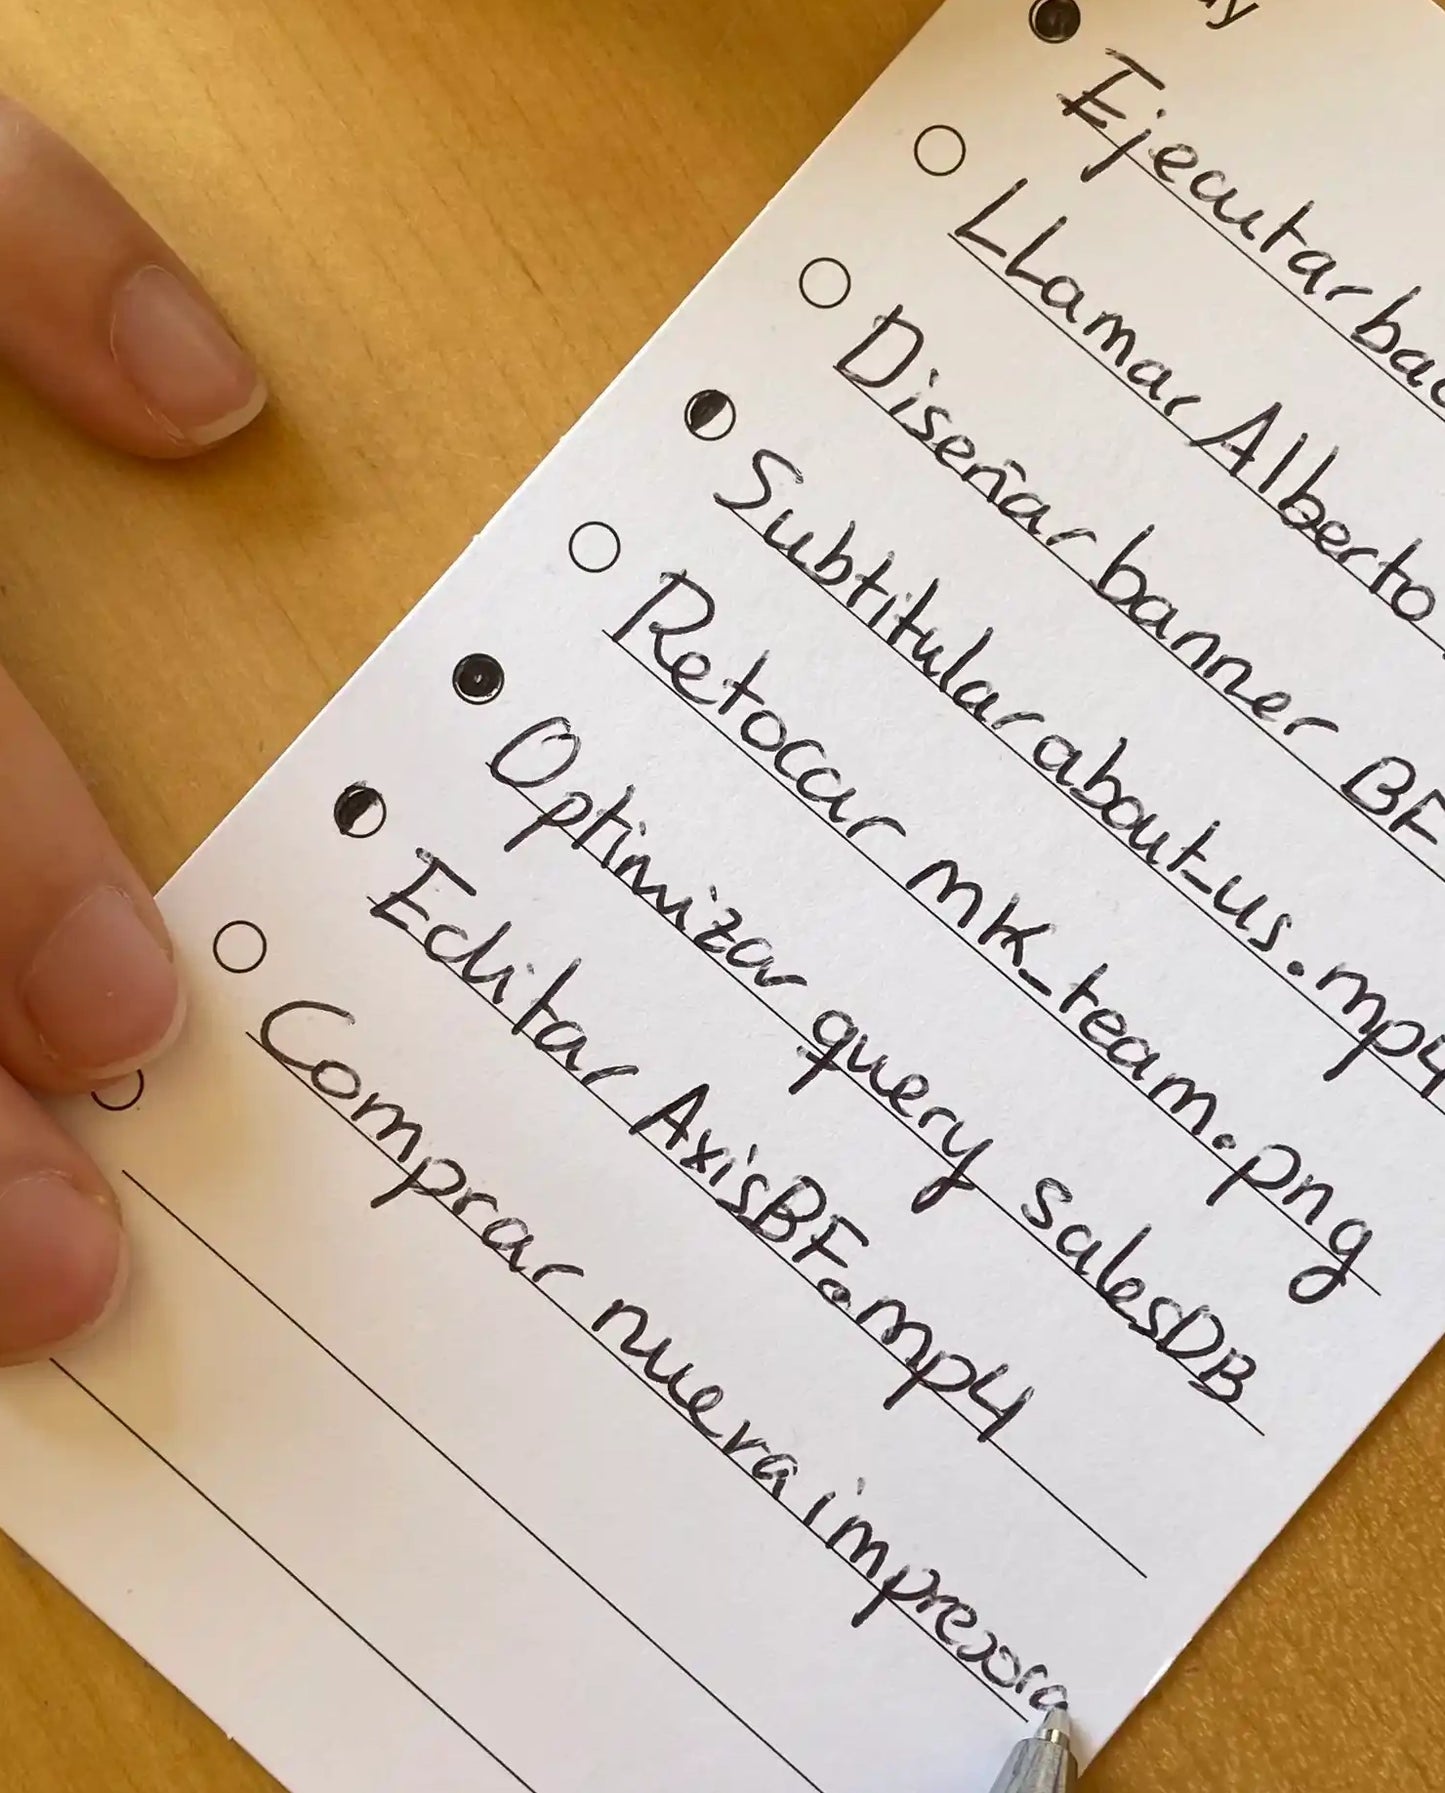 Ejecutar
Llamar Alberto
Diseñar banner BF
Subtitular about_us.mp4
Retocar mk_team.png
Optimizar query salesDB
Editar AxisBF.mp4
Comprar nueva impresora